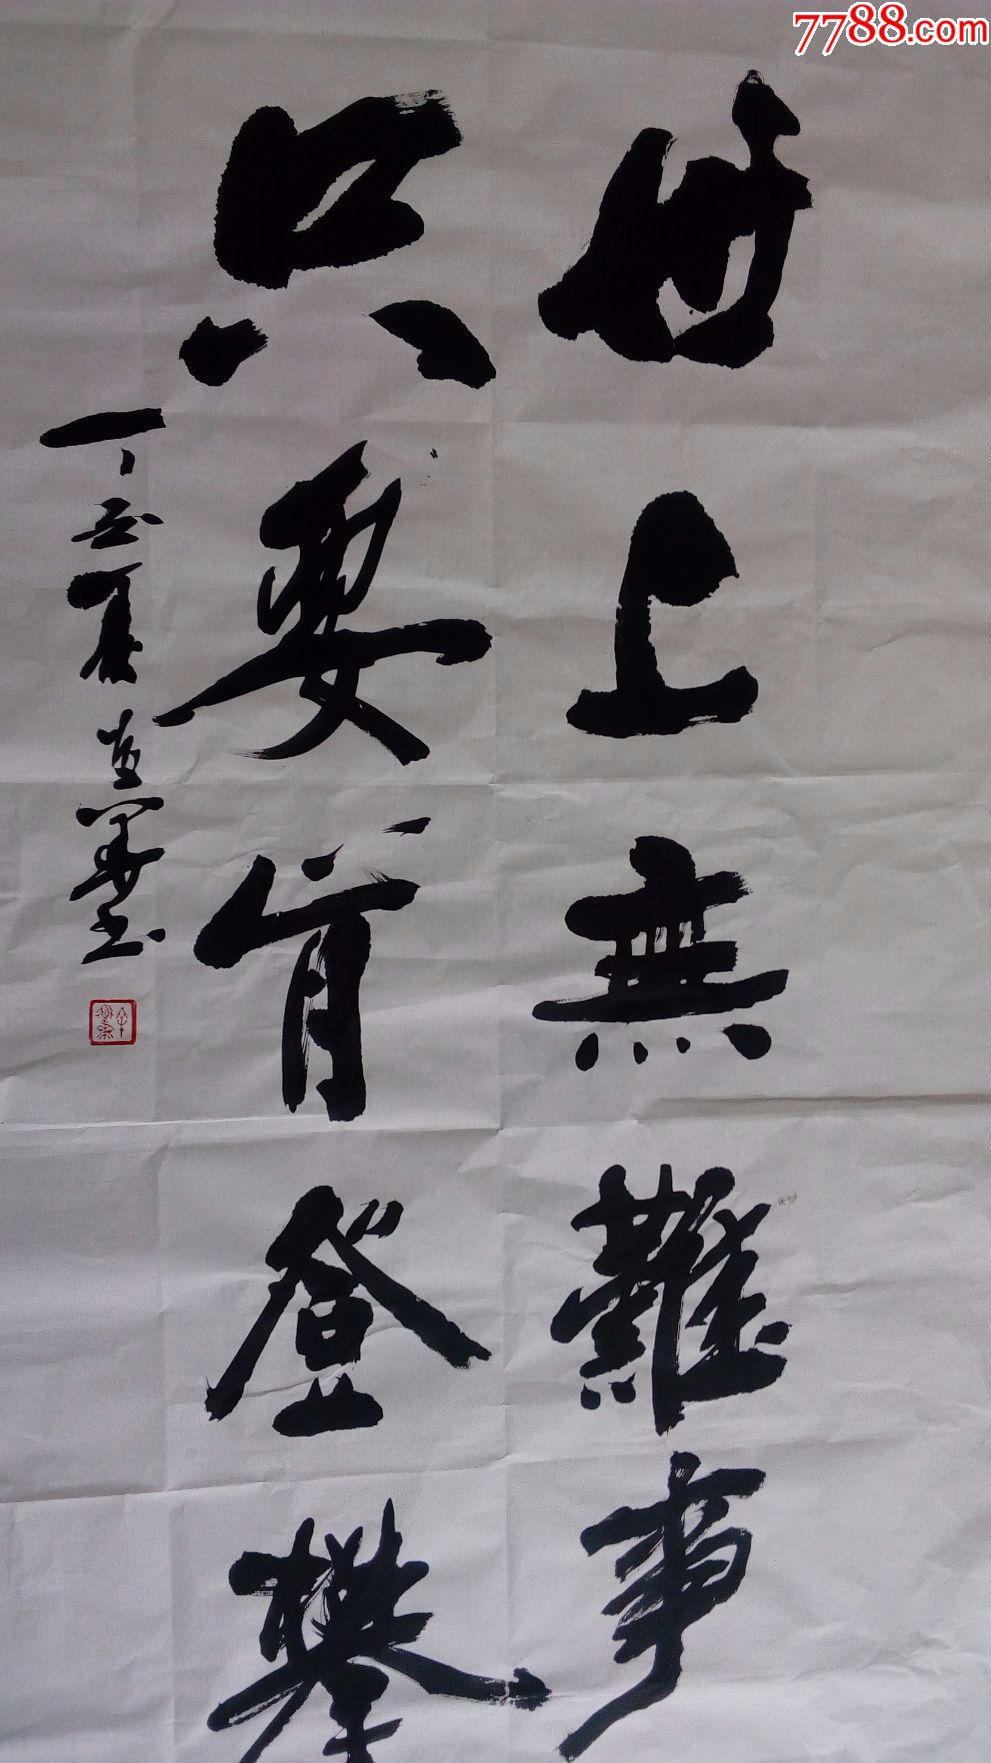 7788.com
世上無難事
只要肯登攀
丁丑夏
書